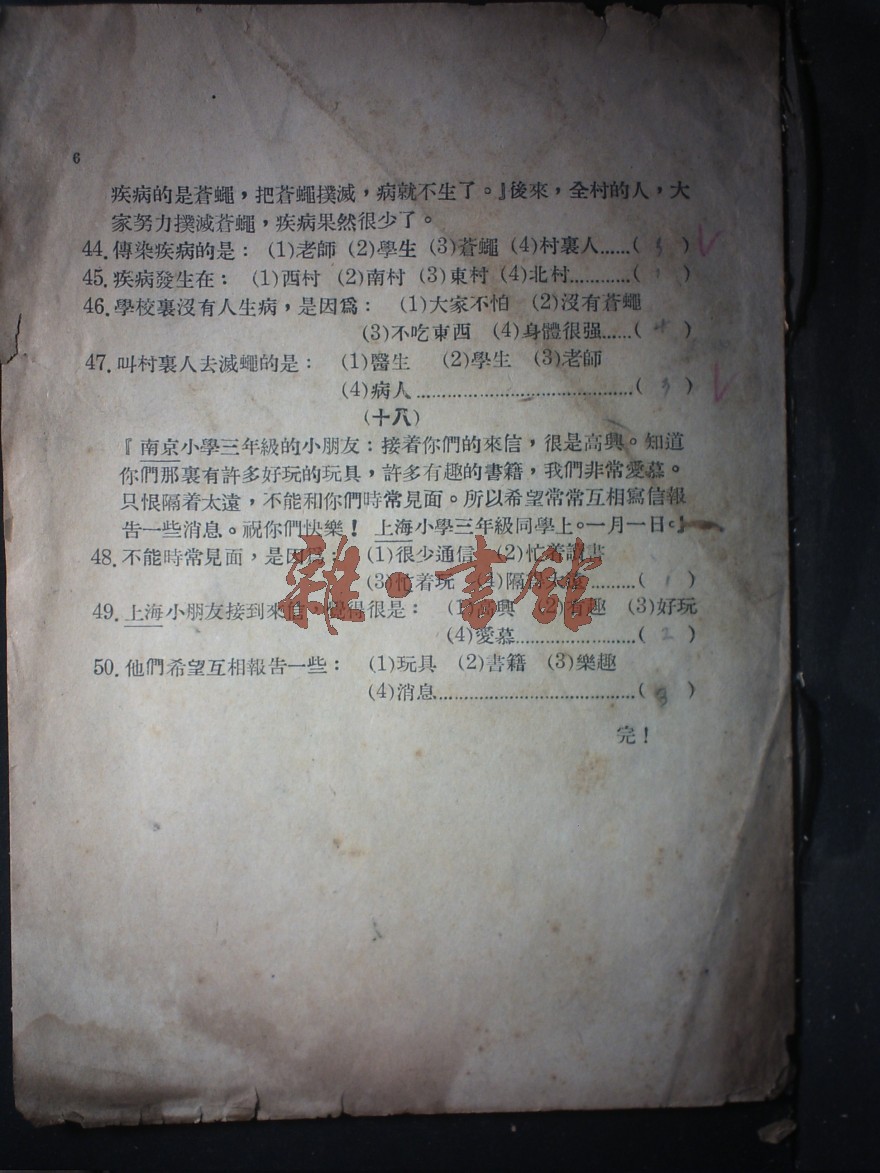 6
疾病的是蒼蠅，把蒼蠅撲滅，病就不生了。』後來，全村的人，大
家努力撲滅蒼蠅，疾病果然很少了。
44. 傳染疾病的是： (1)老師 (2)學生 (3)蒼蠅 (4)村裏人......( 3 )
45. 疾病發生在： (1)西村 (2)南村 (3)東村 (4)北村............( 1 )
46. 學校裏沒有人生病，是因爲： (1)大家不怕 (2)沒有蒼蠅
(3)不吃東西 (4)身體很强......( 4 )
47. 叫村裏人去滅蠅的是： (1)醫生 (2)學生 (3)老師
(4)病人........................................( 3 )
(十八)
『南京小學三年級的小朋友：接着你們的來信，很是高興。知道
你們那裏有許多好玩的玩具，許多有趣的書籍，我們非常愛慕。
只恨隔着太遠，不能和你們時常見面。所以希望常常互相寫信報
告一些消息。祝你們快樂！ 上海小學三年級同學上。一月一日。』
48. 不能時常見面，是因爲： (1)很少通信 (2)忙着讀書
(3)忙着玩 (4)隔着太遠.........( 1 )
49. 上海小朋友接到來信，覺得很是： (1)高興 (2)有趣 (3)好玩
(4)愛慕......................( 2 )
50. 他們希望互相報告一些： (1)玩具 (2)書籍 (3)樂趣
(4)消息....................................( 3 )
完！
雜·書館